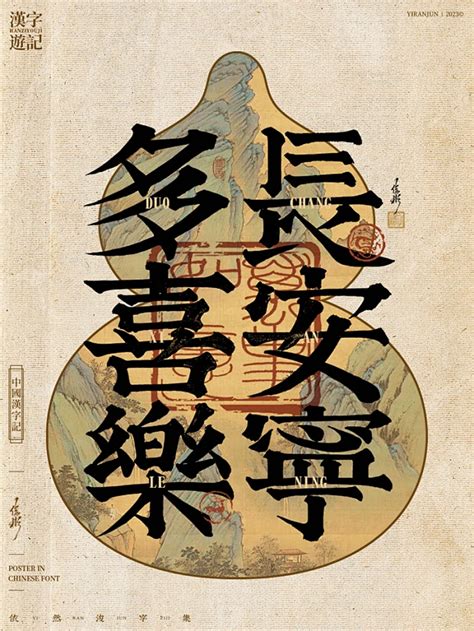 漢字
HANZIYOUJI
遊記
YIRANJUN | 2023©
多喜樂
長安寧
DUO
CHANG
AN
LE
NING
中國漢字記
POSTER IN
CHINESE FONT
依 YI 然 RAN 浚 JUN 字 ZIJI 集